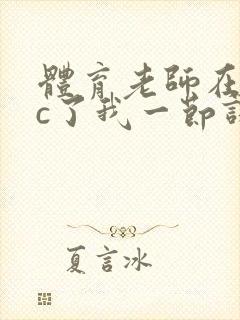 體育老師在
c了我一節課
夏言冰